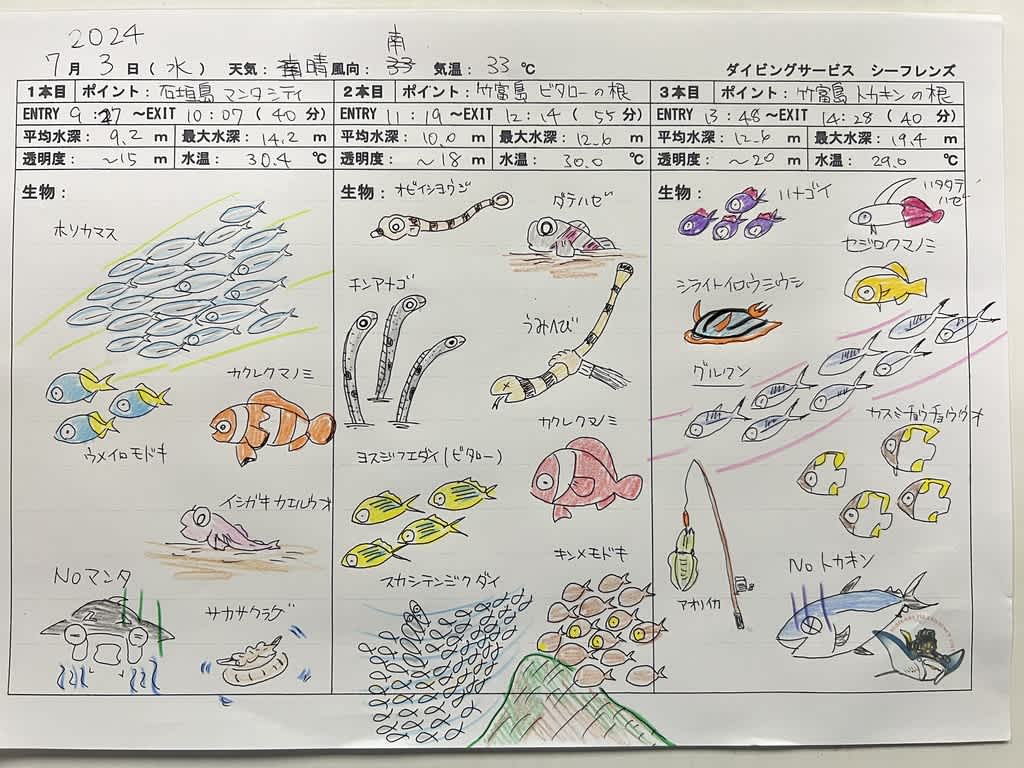 2024
南
7月 3日(水) 天気: 晴 風向: 気温: 33℃
ダイビングサービス シーフレンズ
1本目 ポイント: 石垣島 マンタシティ
ENTRY 9:27 ～EXIT 10:07 (40分)
平均水深: 9.2 m 最大水深: 14.2 m
透明度: ～15 m 水温: 30.4 ℃
生物:
ホソカマス
カクレクマノミ
ウメイロモドキ
イシガキカエルウオ
Noマンタ
サカサクラゲ
2本目 ポイント: 竹富島 ビタローの根
ENTRY 11:19 ～EXIT 12:14 (55分)
平均水深: 10.0 m 最大水深: 12.6 m
透明度: ～18 m 水温: 30.0 ℃
生物:
オビイシヨウジ
ダテハゼ
チンアナゴ
うみへび
カクレクマノミ
ヨスジフエダイ(ビタロー)
キンメモドキ
スカシテンジクダイ
3本目 ポイント: 竹富島 トカキンの根
ENTRY 13:48 ～EXIT 14:28 (40分)
平均水深: 12.6 m 最大水深: 19.4 m
透明度: ～20 m 水温: 29.0 ℃
生物:
ハナゴイ
ハタタテ
ハゼ
セジロクマノミ
シライトイロウミウシ
グルクン
カスミチョウチョウウオ
アオリイカ
Noトカキン